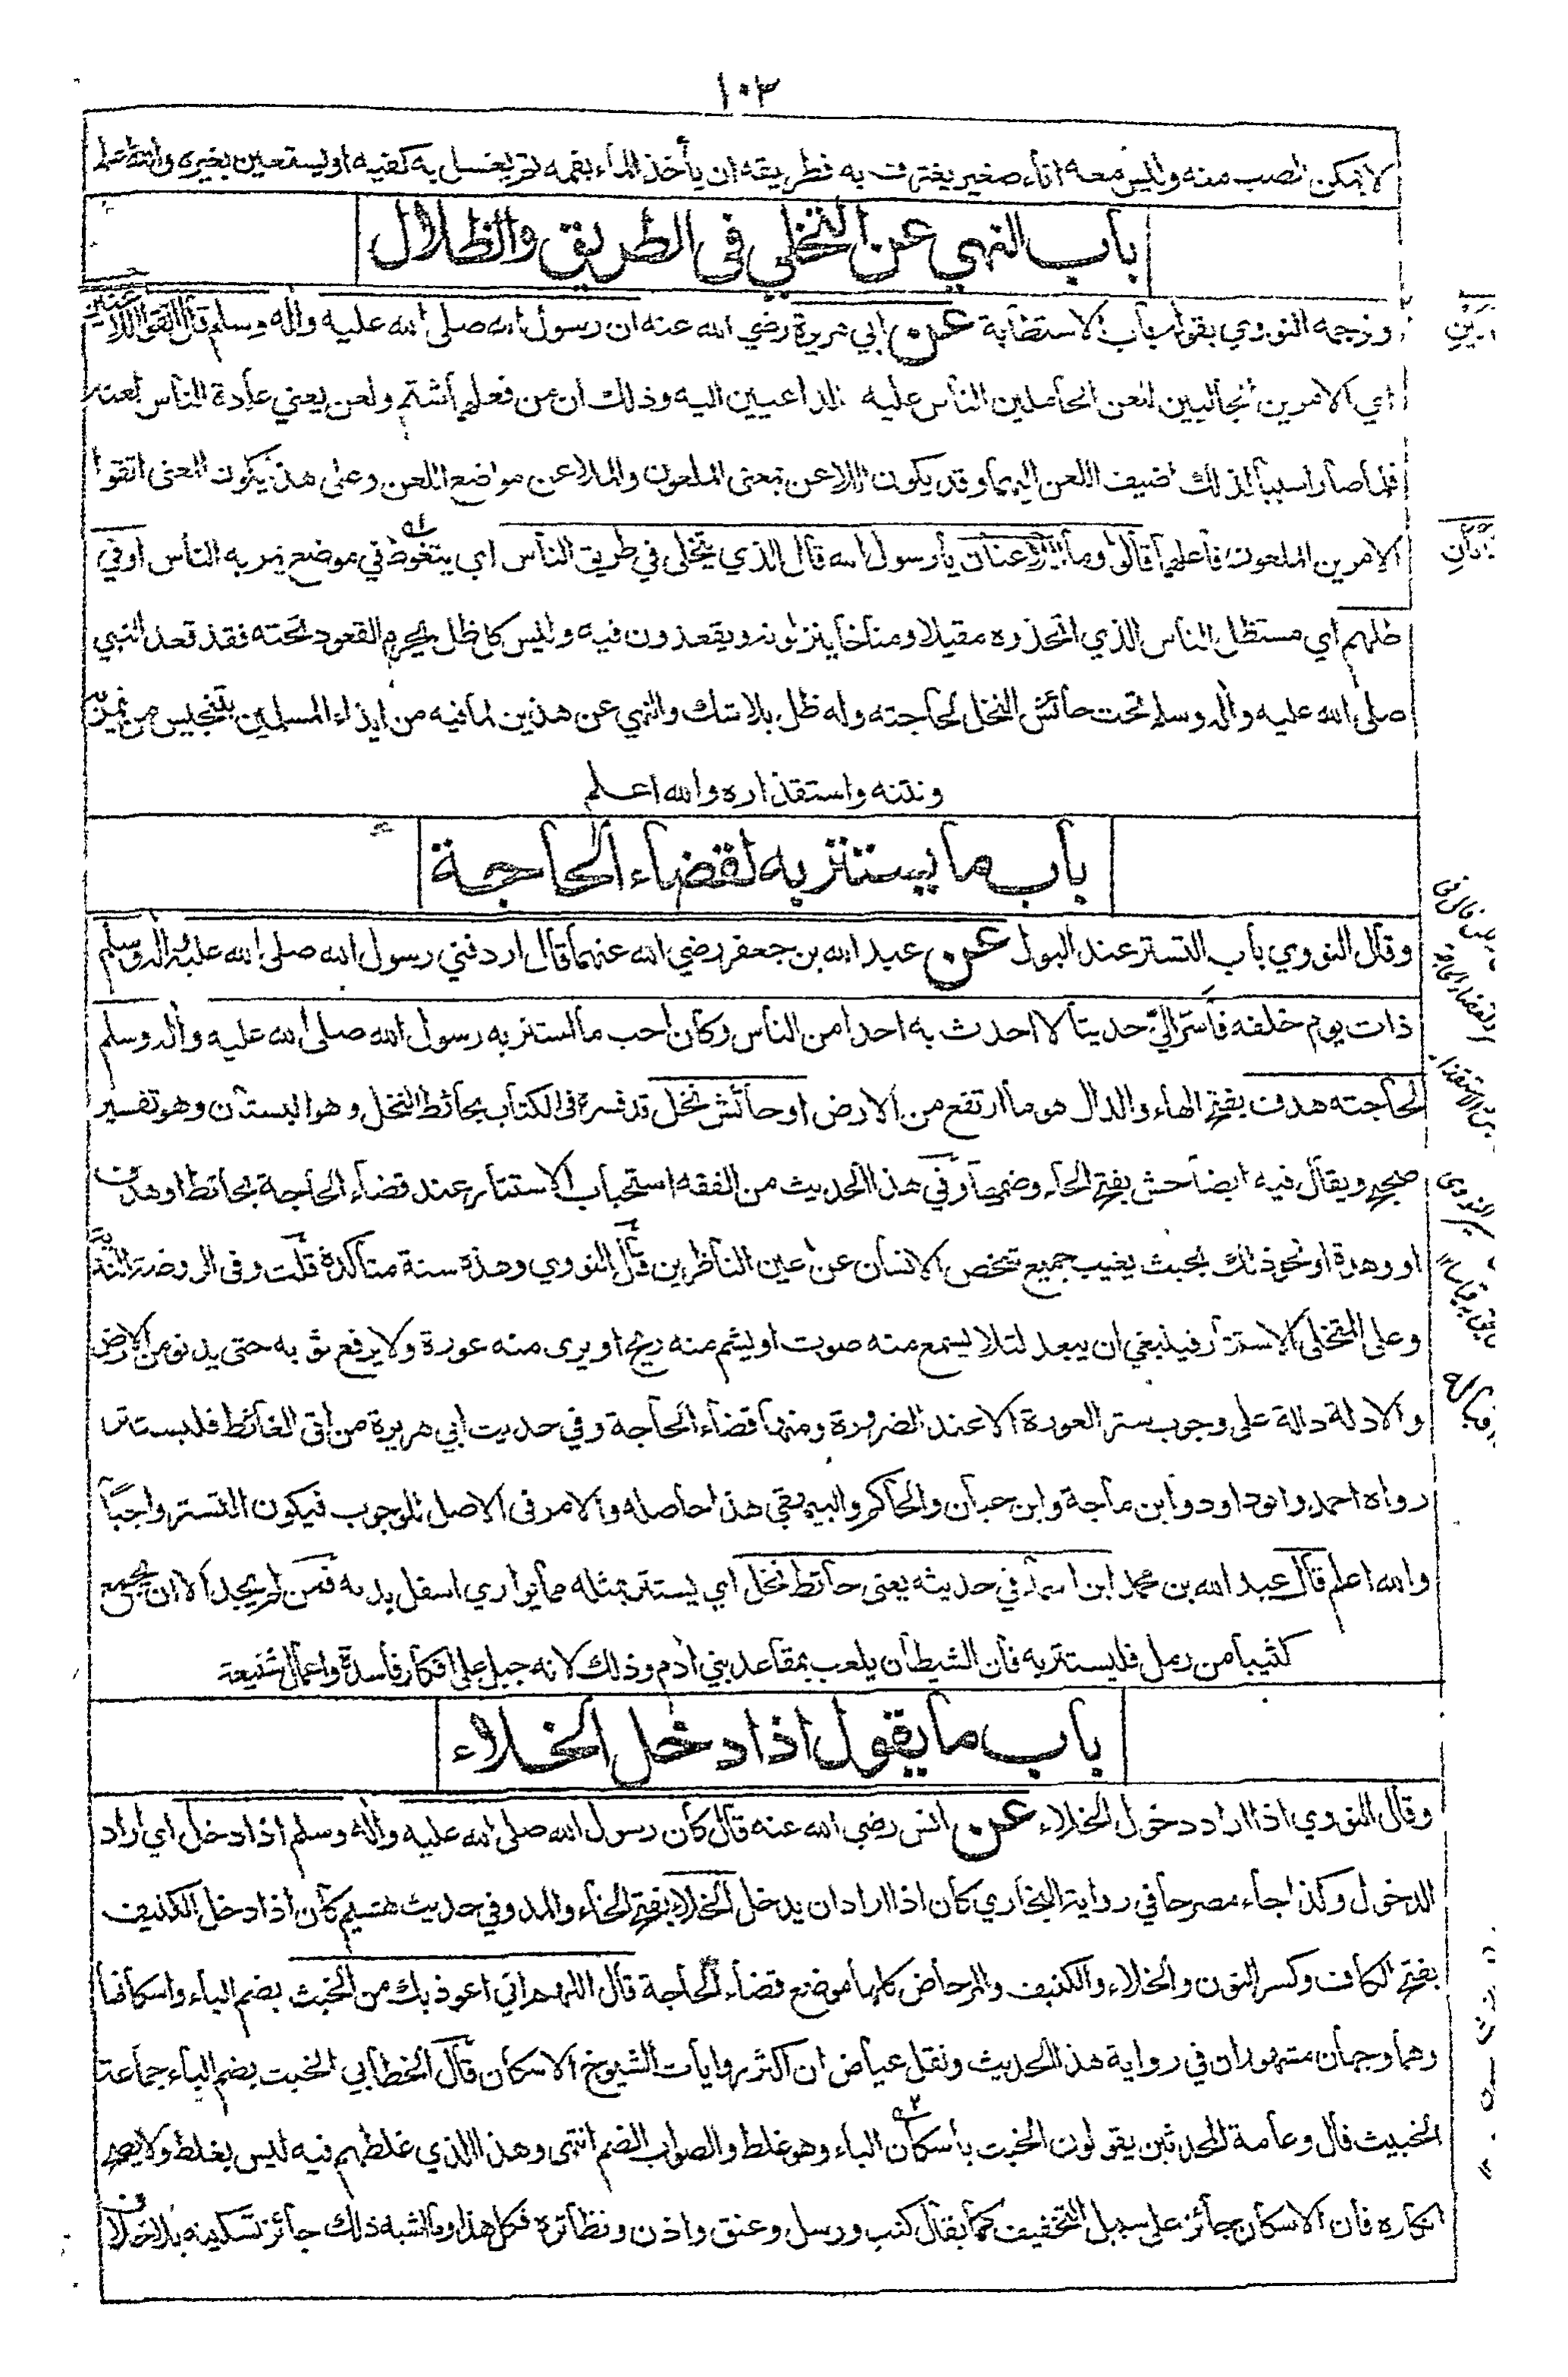 ١٠٣
لا يمكن الصب منه وليس معه اناء صغير يغترف به فطريقه ان يأخذ الماء بفمه ثم يغسل به كفيه او يستعين بغيره والله اعلم
باب النهي عن التخلي في الطريق والظلال
وترجمه النووي بقوله باب الاستطابة عن ابي هريرة رضي الله عنه ان رسول الله صلى الله عليه واٰله وسلم قال اتقوا اللاعنين
اي الامرين الجالبين اللعن الحاملين الناس عليه الداعيين اليه وذلك ان من فعلهما شتم ولعن يعني عادة الناس لعنه
فلما صارا سببا لذلك اضيف اللعن اليهما وقد يكون اللاعن بمعنى الملعون والملاعن مواضع اللعن وعلى هذا يكون المعنى اتقوا
الامرين الملعون فاعلهما قالوا وما اللاعنان يا رسول الله قال الذي يتخلى في طريق الناس اي يتغوط في موضع يمر به الناس او في
ظلهم اي مستظل الناس الذي اتخذوه مقيلا ومناخا ينزلونه ويقعدون فيه وليس كل ظل يحرم القعود تحته فقد قعد النبي
صلى الله عليه واٰله وسلم تحت حائش النخل لحاجته وله ظل بلا شك والنهي عن هذين لما فيه من ايذاء المسلمين بتنجيس من يمر به
ونتنه واستقذاره والله اعلم
باب ما يستتر به لقضاء الحاجة
وقال النووي باب التستر عند البول عن عبد الله بن جعفر رضي الله عنهما قال اردفني رسول الله صلى الله عليه واٰله وسلم
ذات يوم خلفه فأسرّ اليّ حديثا لا احدث به احدا من الناس وكان احب ما استتر به رسول الله صلى الله عليه واٰله وسلم
لحاجته هدف بفتح الهاء والدال هو ما ارتفع من الارض او حائش نخل قد فسره في الكتاب بحائط النخل وهو البستان وهو تفسير
صحيح ويقال فيه ايضا حش بفتح الحاء وضمها وفي هذا الحديث من الفقه استحباب الاستتار عند قضاء الحاجة بحائط او هدف
او وهدة او نحو ذلك بحيث يغيب جميع شخص الانسان عن اعين الناظرين قال النووي وهذه سنة متأكدة قلت وفي الروضة الندية
وعلى المتخلي الاستتار فينبغي ان يبعد لئلا يسمع منه صوت او يشم منه ريح او يرى منه عورة ولا يرفع ثوبه حتى يدنو من الارض
والادلة دالة على وجوب ستر العورة الا عند الضرورة ومنها قضاء الحاجة وفي حديث ابي هريرة من اتى الغائط فليستتر
رواه احمد وابو داود وابن ماجة وابن حبان والحاكم والبيهقي هذا حاصله والامر في الاصل للوجوب فيكون التستر واجبًا
والله اعلم قال عبد الله بن محمد ابن اسماء في حديثه يعني حائط نخل اي يستتر بمثله مما يواري اسفل بدنه فمن لم يجد الا ان يجمع
كثيبا من رمل فليستتر به فان الشيطان يلعب بمقاعد بني اٰدم وذلك لانه جبل على افكار فاسدة واعمال شنيعة
باب ما يقول اذا دخل الخلاء
وقال النووي اذا اراد دخول الخلاء عن انس رضي الله عنه قال كان رسول الله صلى الله عليه واٰله وسلم اذا دخل اي اراد
الدخول وكذا جاء مصرحا في رواية البخاري كان اذا اراد ان يدخل الخلاء بفتح الخاء والمد وفي حديث هشيم كان اذا دخل الكنيف
بفتح الكاف وكسر النون والخلاء والكنيف والمرحاض كلها موضع قضاء الحاجة قال اللهم اني اعوذ بك من الخبث بضم الباء واسكانها
وهما وجهان مشهوران في رواية هذا الحديث ونقل عياض ان اكثر روايات الشيوخ الاسكان قال الخطابي الخبث بضم الباء جماعة
الخبيث قال وعامة المحدثين يقولون الخبث باسكان الباء وهو غلط والصواب الضم انتهى وهذا الذي غلطهم فيه ليس بغلط ولا يصح
انكاره فان الاسكان جائز على سبيل التخفيف كما يقال كتب ورسل وعنق واذن ونظائره فكل هذا وما اشبه ذلك جائز تسكينه بلا خلاف